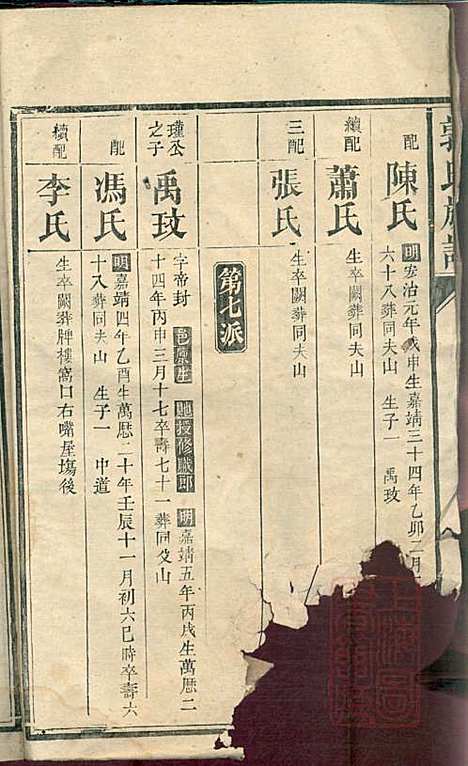 郭氏族譜
配
陳氏
明安治元年戊申生嘉靖三十四年乙卯二月
六十八葬同夫山 生子一 禹玫
續配
蕭氏
生卒闕葬同夫山
三配
張氏
生卒闕葬同夫山
第七派
瑾公
之子
禹玟
字帝封 邑廩生 貤授修職郎 明嘉靖五年丙戌生萬厯二
十四年丙申三月十七卒壽七十一葬同父山
配
馮氏
明嘉靖四年乙酉生萬厯二十年壬辰十一月初六巳時卒壽六
十八葬同夫山 生子一 中道
續配
李氏
生卒闕葬牌樓窩口右嘴屋塲後